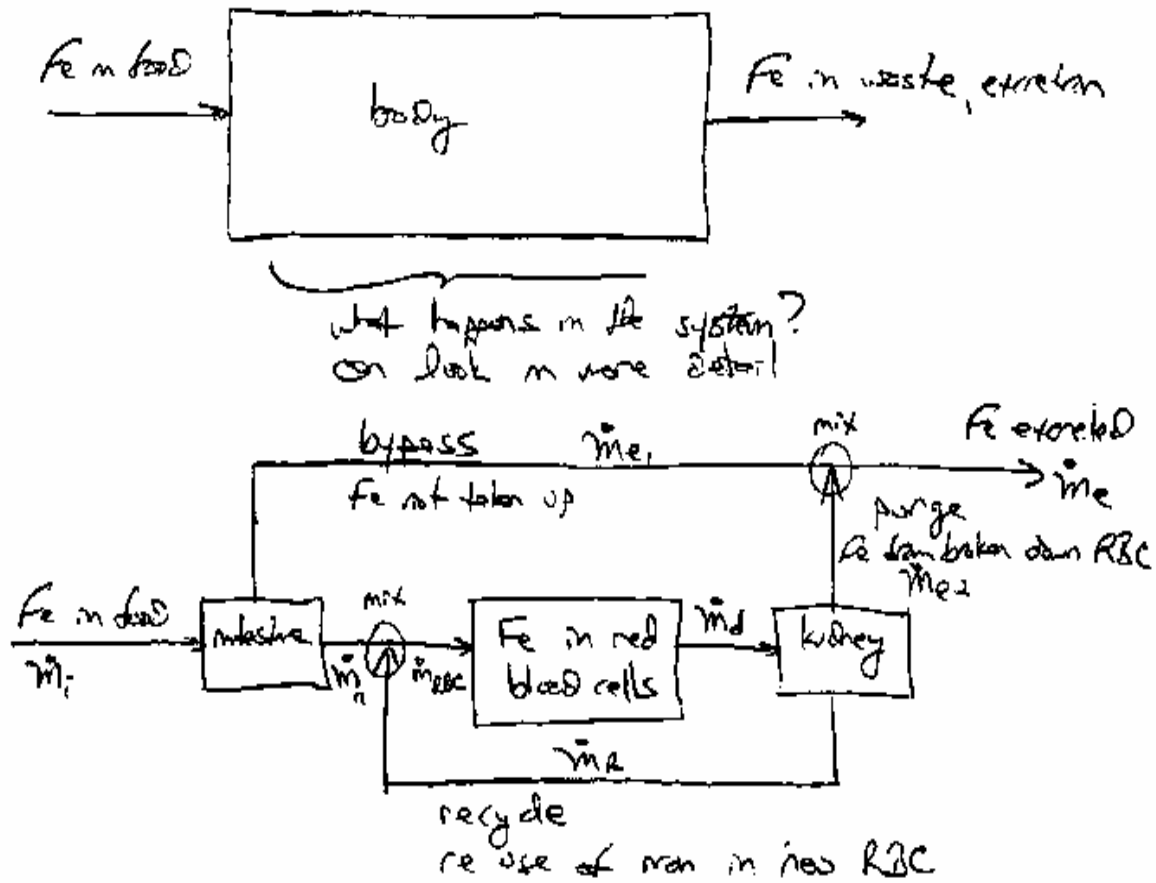 Fe in food
body
Fe in waste, excretion
what happens in the system?
can look in more detail
bypass
ṁe₁
mix
Fe excreted
ṁe
Fe not taken up
purge
Fe from broken down RBC
ṁe₂
Fe in food
ṁi
intestine
ṁn
mix
ṁRBC
Fe in red
blood cells
ṁd
kidney
ṁR
recycle
re use of iron in new RBC